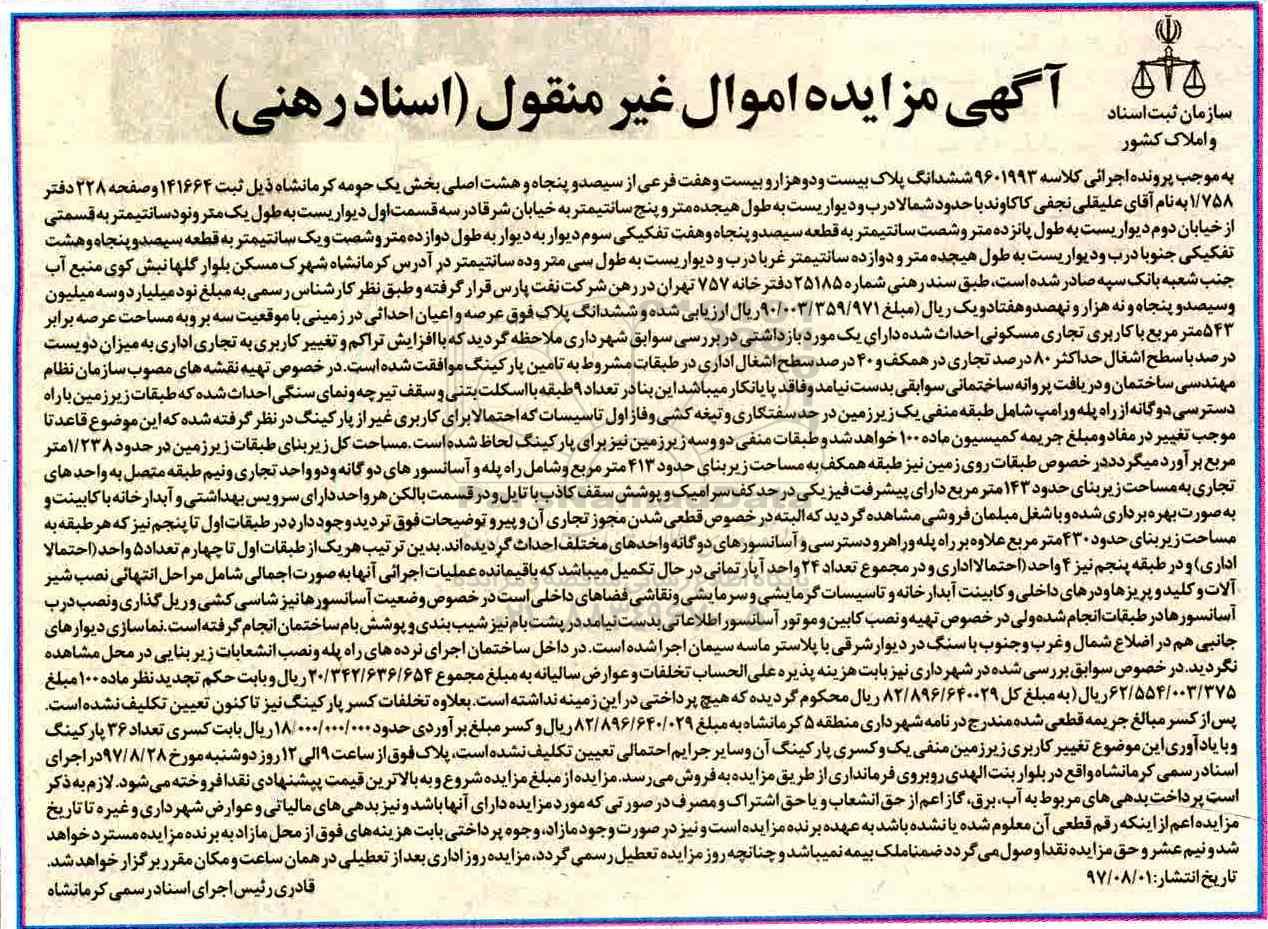 سازمان ثبت اسناد
و املاک کشور
آگهی مزایده اموال غیر منقول (اسناد رهنی)
به موجب پرونده اجرائی کلاسه ۹۶۰۱۹۹۳ ششدانگ پلاک بیست و دو هزار و بیست و هفت فرعی از سیصد و پنجاه و هشت اصلی بخش یک حومه کرمانشاه ذیل ثبت ۱۴۱۶۶۴ و صفحه ۲۲۸ دفتر
۱/۷۵۸ به نام آقای علیقلی نجفی کاکاوند با حدود شمالا درب و دیواریست به طول هیجده متر و پنج سانتیمتر به خیابان شرقا در سه قسمت اول دیواریست به طول یک متر و نود سانتیمتر به قسمتی
از خیابان دوم دیواریست به طول پانزده متر و شصت سانتیمتر به قطعه سیصد و پنجاه و هفت تفکیکی سوم دیوار به دیوار به طول دوازده متر و شصت و یک سانتیمتر به قطعه سیصد و پنجاه و هشت
تفکیکی جنوبا درب و دیواریست به طول هیجده متر و دوازده سانتیمتر غربا درب و دیواریست به طول سی متر و ده سانتیمتر در آدرس کرمانشاه شهرک مسکن بلوار گلها نبش کوی منبع آب
جنب شعبه بانک سپه صادر شده است، طبق سند رهنی شماره ۲۵۱۸۵ دفترخانه ۷۵۷ تهران در رهن شرکت نفت پارس قرار گرفته و طبق نظر کارشناس رسمی به مبلغ نود میلیارد و سه میلیون
و سیصد و پنجاه و نه هزار و نهصد و هفتاد و یک ریال (مبلغ ۹۰/۰۰۳/۳۵۹/۹۷۱ ریال ارزیابی شده و ششدانگ پلاک فوق عرصه و اعیان احداثی در زمینی با موقعیت سه بر و به مساحت عرصه برابر
۵۴۳ متر مربع با کاربری تجاری مسکونی احداث شده دارای یک مورد بازداشتی در بررسی سوابق شهرداری ملاحظه گردید که با افزایش تراکم و تغییر کاربری به تجاری اداری به میزان دویست
درصد با سطح اشغال حداکثر ۸۰ درصد تجاری در همکف و ۴۰ درصد سطح اشغال اداری در طبقات مشروط به تامین پارکینگ موافقت شده است. در خصوص تهیه نقشه های مصوب سازمان نظام
مهندسی ساختمان و دریافت پروانه ساختمانی سوابقی بدست نیامد و فاقد پایانکار میباشد این بنا در تعداد ۹ طبقه با اسکلت بتنی و سقف تیرچه و نمای سنگی احداث شده که طبقات زیرزمین با راه
دسترسی دوگانه از راه پله و رامپ شامل طبقه منفی یک زیرزمین در حد سفتکاری و تیغه کشی و فاز اول تاسیسات که احتمالا برای کاربری غیر از پارکینگ در نظر گرفته شده که این موضوع قاعدتا
موجب تغییر در مفاد و مبلغ جریمه کمیسیون ماده ۱۰۰ خواهد شد و طبقات منفی دو و سه زیرزمین نیز برای پارکینگ لحاظ شده است. مساحت کل زیربنای طبقات زیرزمین در حدود ۱/۲۳۸ متر
مربع برآورد میگردد در خصوص طبقات روی زمین نیز طبقه همکف به مساحت زیربنای حدود ۴۱۳ متر مربع و شامل راه پله و آسانسور های دوگانه و دو واحد تجاری و نیم طبقه متصل به واحدهای
تجاری به مساحت زیربنای حدود ۱۴۳ متر مربع دارای پیشرفت فیزیکی در حد کف سرامیک و پوشش سقف کاذب با تایل و در قسمت بالکن هر واحد دارای سرویس بهداشتی و آبدارخانه با کابینت و
به صورت بهره برداری شده و با شغل مبلمان فروشی مشاهده گردید که البته در خصوص قطعی شدن مجوز تجاری آن و پیرو توضیحات فوق تردید وجود دارد در طبقات اول تا پنجم نیز که هر طبقه به
مساحت زیربنای حدود ۴۳۰ متر مربع علاوه بر راه پله و راهرو دسترسی و آسانسورهای دوگانه واحدهای مختلف احداث گردیده اند. بدین ترتیب هر یک از طبقات اول تا چهارم تعداد ۵ واحد (احتمالا
اداری) و در طبقه پنجم نیز ۴ واحد (احتمالا اداری و در مجموع تعداد ۲۴ واحد آپارتمانی در حال تکمیل میباشد که باقیمانده عملیات اجرائی آنها به صورت اجمالی شامل مراحل انتهائی نصب شیر
آلات و کلید و پریزها و درهای داخلی و کابینت آبدارخانه و تاسیسات گرمایشی و سرمایشی و نقاشی فضاهای داخلی است در خصوص وضعیت آسانسورها نیز شاسی کشی و ریل گذاری و نصب درب
آسانسورها در طبقات انجام شده ولی در خصوص تهیه و نصب کابین و موتور آسانسور اطلاعاتی بدست نیامد در پشت بام نیز شیب بندی و پوشش بام ساختمان انجام گرفته است. نماسازی دیوارهای
جانبی هم در اضلاع شمال و غرب و جنوب با سنگ در دیوار شرقی با پلاستر ماسه سیمان اجرا شده است. در داخل ساختمان اجرای نرده های راه پله و نصب انشعابات زیربنایی در محل مشاهده
نگردید. در خصوص سوابق بررسی شده در شهرداری نیز بابت هزینه پذیره علی الحساب تخلفات و عوارض سالیانه به مبلغ مجموع ۲۰/۳۴۲/۶۳۶/۶۵۴ ریال و بابت حکم تجدید نظر ماده ۱۰۰ مبلغ
۶۲/۵۵۴/۰۰۳/۳۷۵ ریال (به مبلغ کل ۸۲/۸۹۶/۶۴۰۰۲۹ ریال محکوم گردیده که هیچ پرداختی در این زمینه نداشته است. بعلاوه تخلفات کسر پارکینگ نیز تاکنون تعیین تکلیف نشده است.
پس از کسر مبالغ جریمه قطعی شده مندرج در نامه شهرداری منطقه ۵ کرمانشاه به مبلغ ۸۲/۸۹۶/۶۴۰/۰۲۹ ریال و کسر مبلغ برآوردی حدود ۱۸/۰۰۰/۰۰۰/۰۰۰ ریال بابت کسری تعداد ۳۶ پارکینگ
و با یادآوری این موضوع تغییر کاربری زیرزمین منفی یک و کسری پارکینگ آن و سایر جرایم احتمالی تعیین تکلیف نشده است، پلاک فوق از ساعت ۹ الی ۱۲ روز دوشنبه مورخ ۹۷/۸/۲۸ در اجرای
اسناد رسمی کرمانشاه واقع در بلوار بنت الهدی روبروی فرمانداری از طریق مزایده به فروش می رسد. مزایده از مبلغ مزایده شروع و به بالاترین قیمت پیشنهادی نقدا فروخته می شود. لازم به ذکر
است پرداخت بدهی های مربوط به آب، برق، گاز اعم از حق انشعاب و یا حق اشتراک و مصرف در صورتی که مورد مزایده دارای آنها باشد و نیز بدهی های مالیاتی و عوارض شهرداری و غیره تا تاریخ
مزایده اعم از اینکه رقم قطعی آن معلوم شده یا نشده باشد به عهده برنده مزایده است و نیز در صورت وجود مازاد، وجوه پرداختی بابت هزینه های فوق از محل مازاد به برنده مزایده مسترد خواهد
شد و نیم عشر و حق مزایده نقدا وصول می گردد ضمنا ملک بیمه نمیباشد و چنانچه روز مزایده تعطیل رسمی گردد، مزایده روز اداری بعد از تعطیلی در همان ساعت و مکان مقرر برگزار خواهد شد.
تاریخ انتشار: ۹۷/۰۸/۰۱
قادری رئیس اجرای اسناد رسمی کرمانشاه